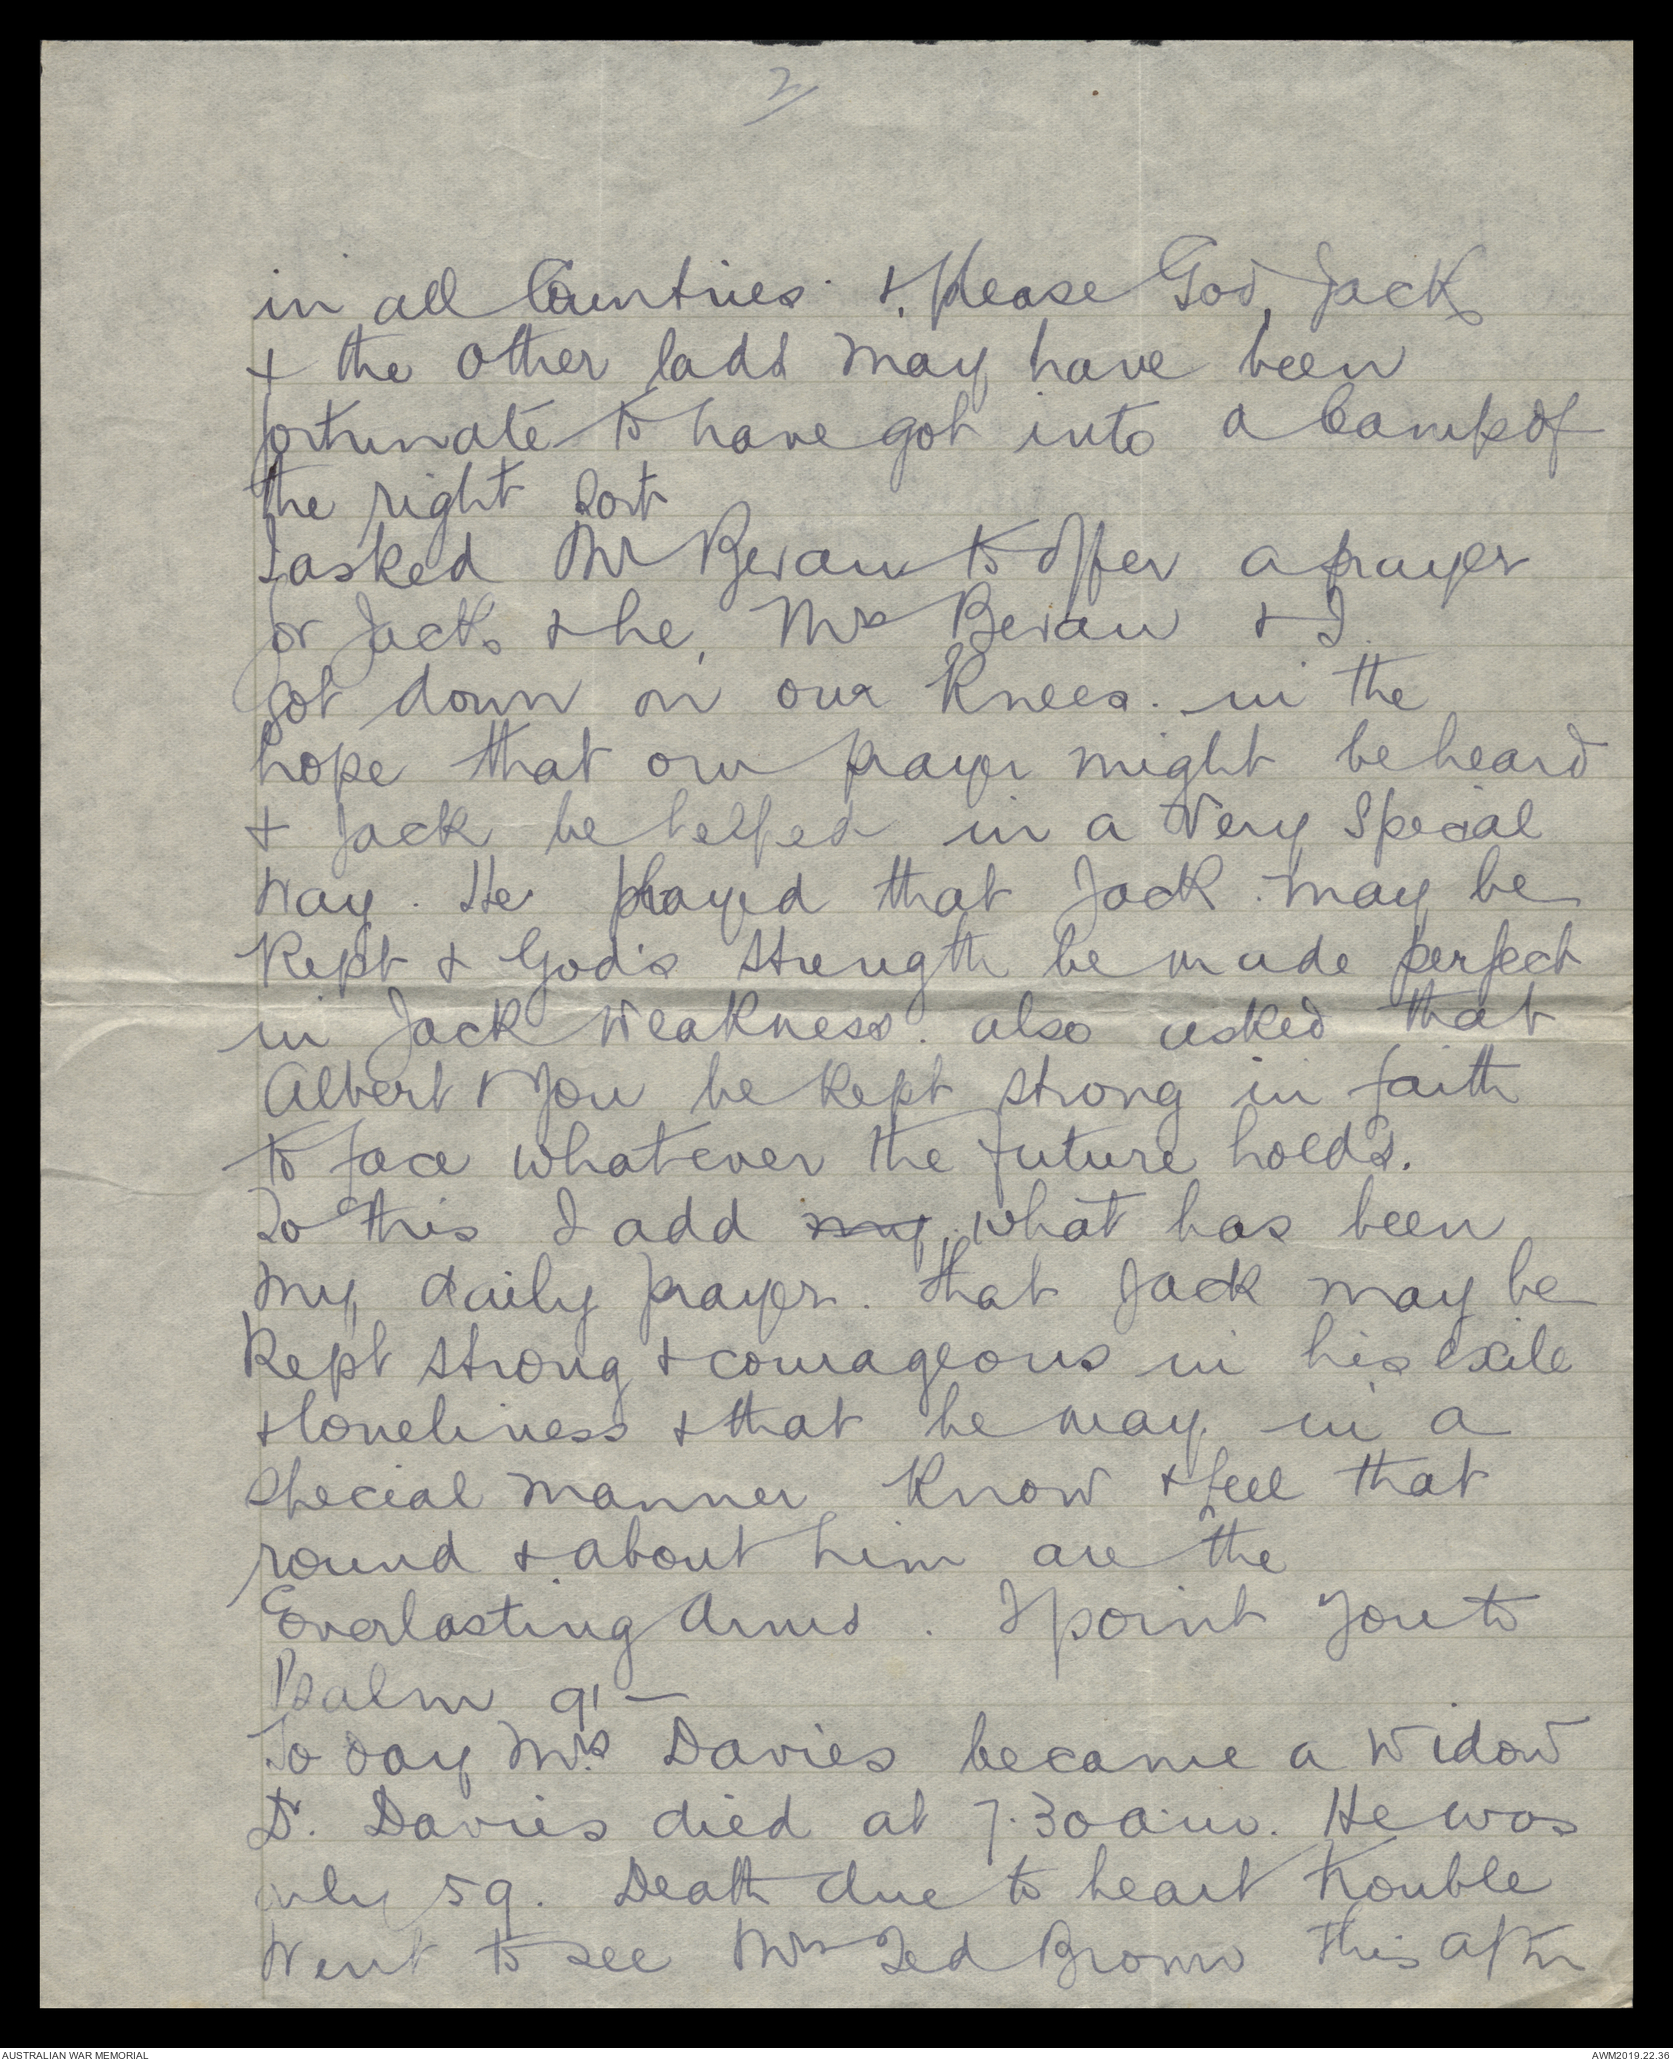 2/
in all Countries & please God, Jack
& the other lads may have been
fortunate to have got into a Camp of
the right sort
I asked Mr Bevan to offer a prayer
for Jack & he, Mrs Bevan & I
got down on our knees. in the
hope that our prayer might be heard
& Jack be helped in a Very Special
way. He prayed that Jack may be
Kept & God's strength be made perfect
in Jack weakness. also asked that
Albert & You be kept strong in faith
to face whatever the future holds.
To this I add my what has been
my daily prayer. that Jack may be
Kept strong & courageous in his exile
& loneliness & that he may in a
special manner know & feel that
round & about him are the
Everlasting Arms. I point You to
Psalm 91 —
To day Mrs Davies became a Widow
Dr. Davies died at 7.30 a.m. He was
only 59. Death due to heart trouble
Went to see Mrs Ted Brown this aftn
AUSTRALIAN WAR MEMORIAL
AWM2019.22.36